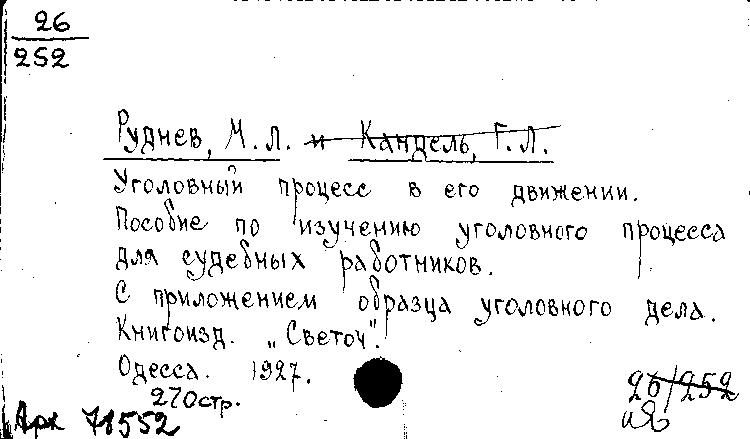 26
252
Руднев, М. Л. и Кандель, Г. Л.
Уголовный процесс в его движении.
Пособие по изучению уголовного процесса
для судебных работников.
С приложением образца уголовного дела.
Книгоизд. „Светоч".
Одесса. 1927.
270 стр.
26/252
Арк 78552